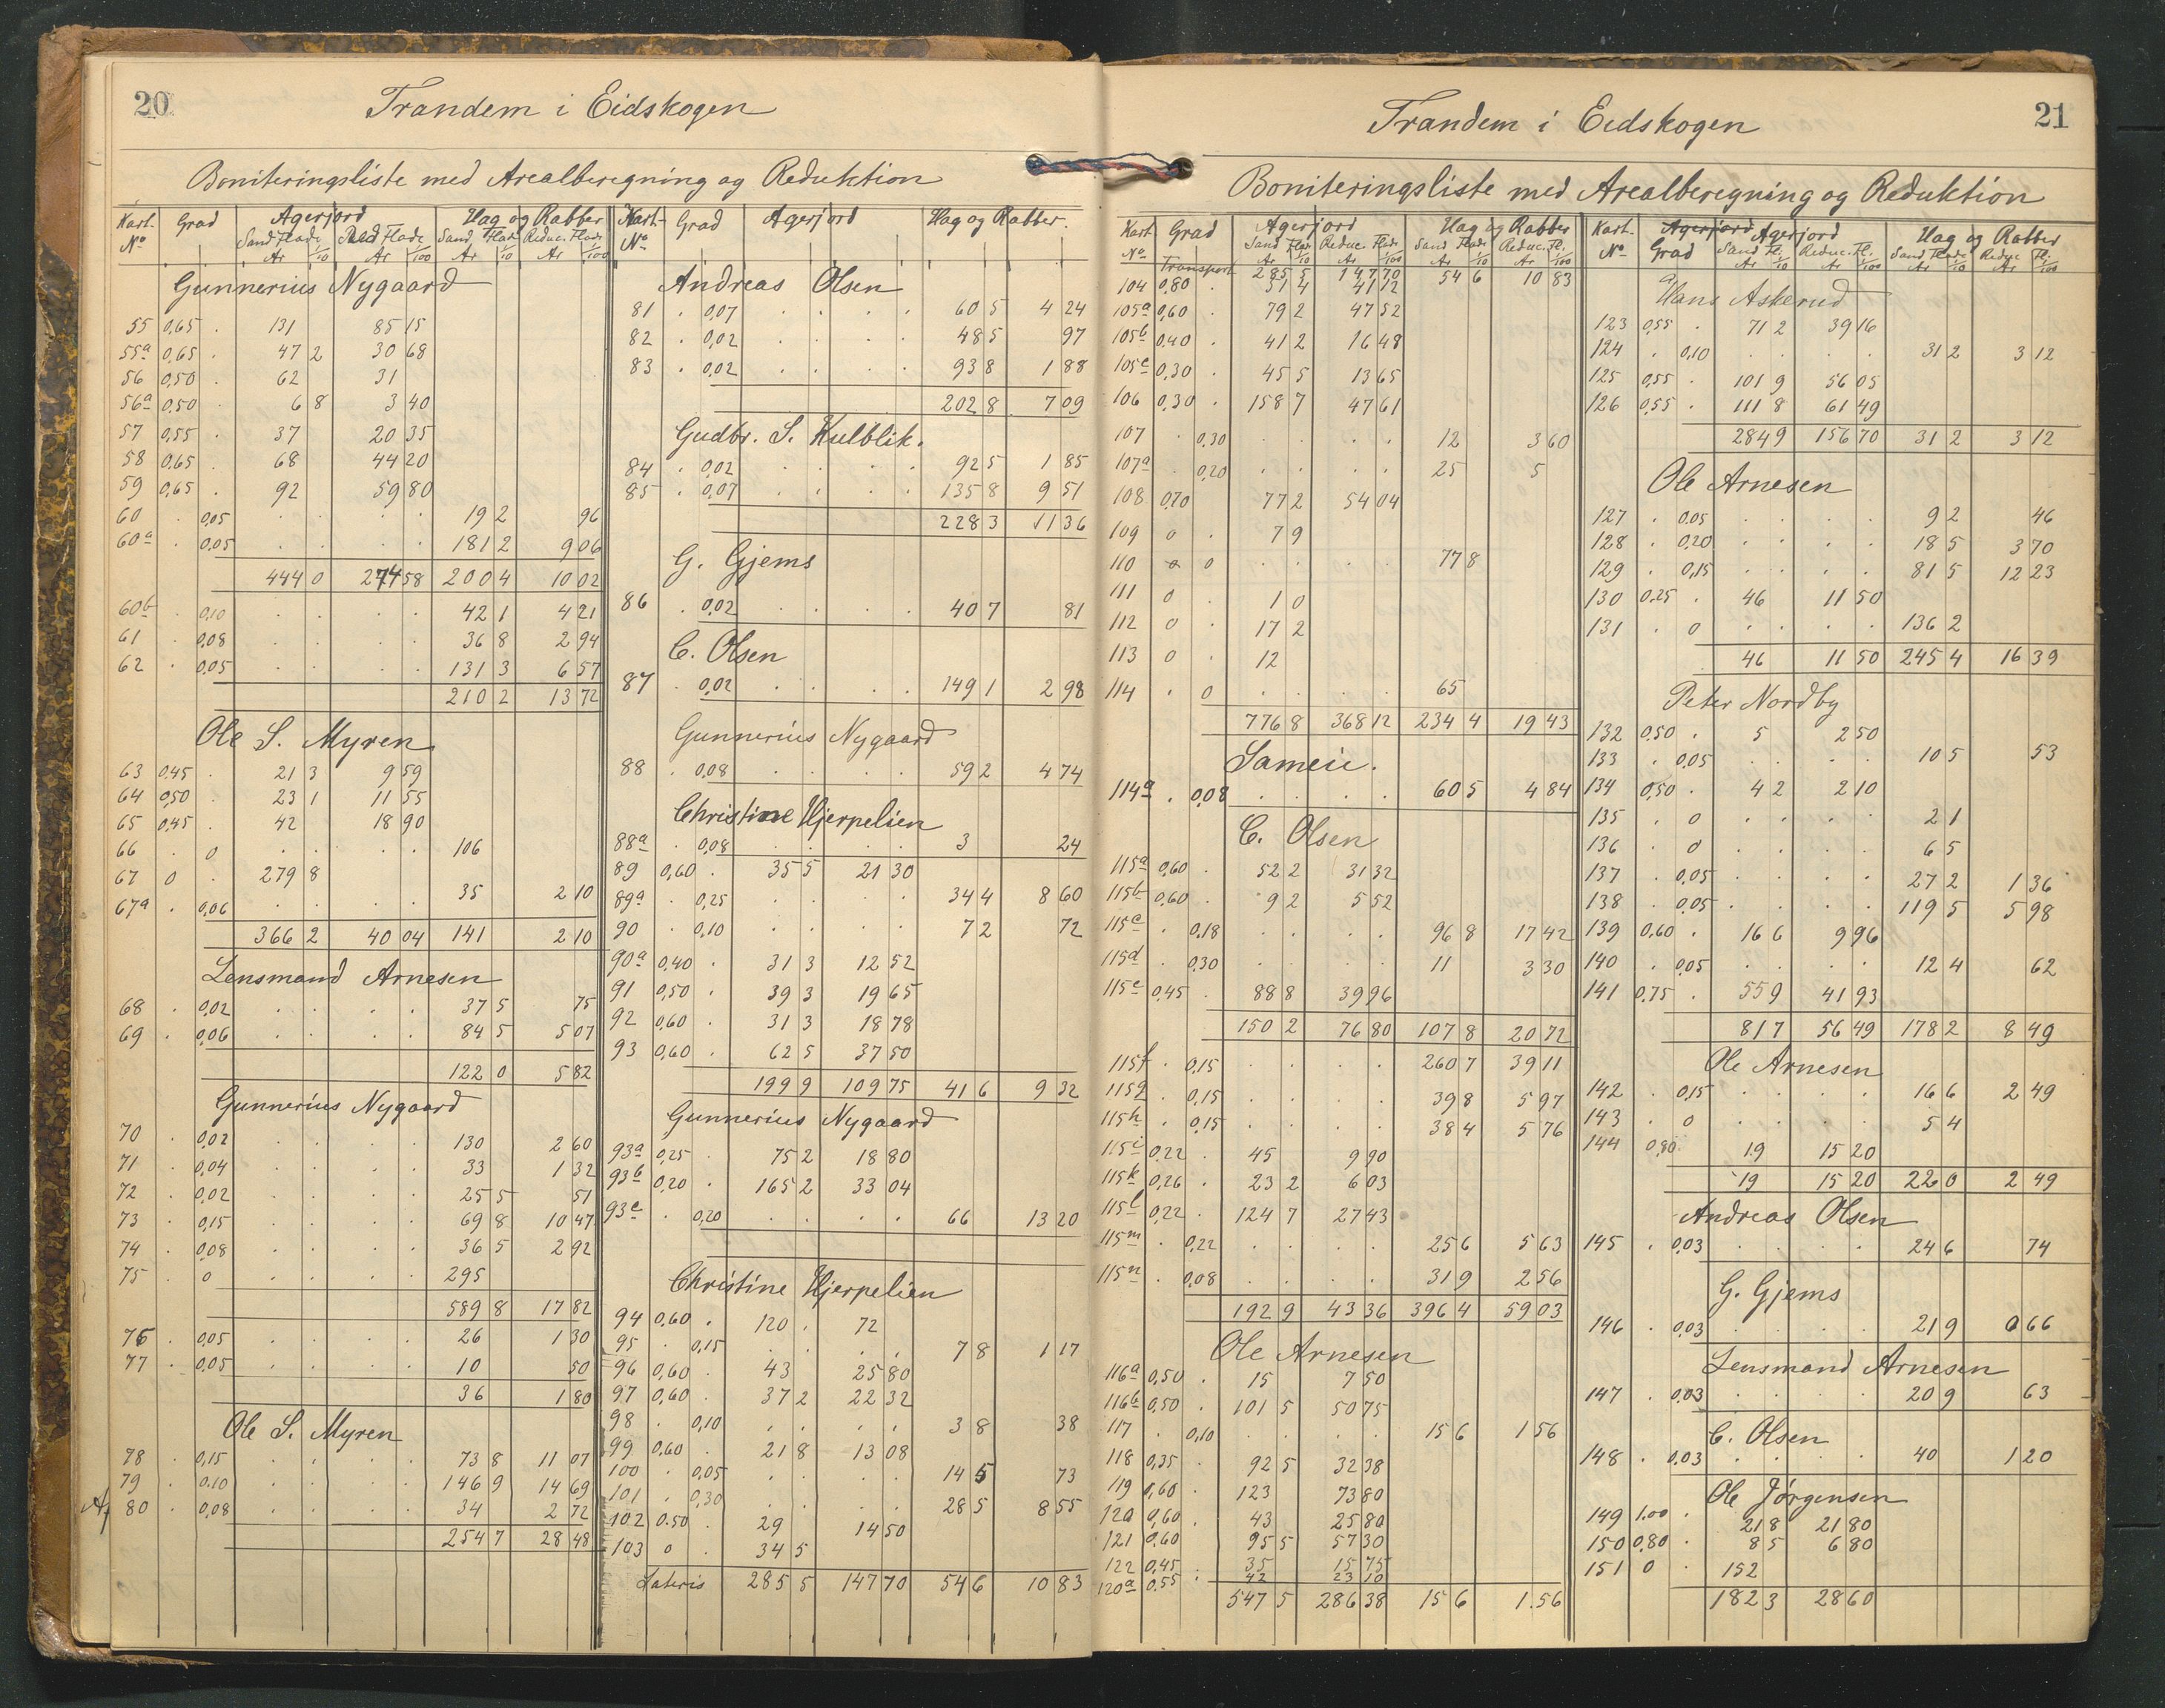 20
Trandem i Eidskogen
Boniteringsliste med Arealberegning og Reduktion
Kart. Grad Agerjord Hag og Rabber
No Sand Flade Red Flade Sand Flade Reduc. Flade
Ar 1/10 Ar 1/100 Ar 1/10 Ar 1/100
Gunnerius Nygaard
55 0,65 . 131 85 15
55a 0,65 . 47 2 30 68
56 0,50 . 62 31
56a 0,50 . 6 8 3 40
57 0,55 . 37 20 35
58 0,65 . 68 44 20
59 0,65 . 92 59 80
60 . 0,05 . . . . 19 2 96
60a . 0,05 . . . . 181 2 9 06
444 0 274 58 200 4 10 02
60b . 0,10 . . . . 42 1 4 21
61 . 0,08 . . . . 36 8 2 94
62 . 0,05 . . . . 131 3 6 57
210 2 13 72
Ole S. Myren
63 0,45 . 21 3 9 59
64 0,50 . 23 1 11 55
65 0,45 . 42 18 90
66 . 0 . . . . 106
67 0 . 279 8
67a . 0,06 . . . . 35 2 10
366 2 40 04 141 2 10
Lensmand Arnesen
68 . 0,02 . . . . 37 5 75
69 . 0,06 . . . . 84 5 5 07
122 0 5 82
Gunnerius Nygaard
70 . 0,02 . . . . 130 2 60
71 . 0,04 . . . . 33 1 32
72 . 0,02 . . . . 25 5 51
73 . 0,15 . . . . 69 8 10 47
74 . 0,08 . . . . 36 5 2 92
75 . 0 . . . . 295
589 8 17 82
76 . 0,05 . . . . 26 1 30
77 . 0,05 . . . . 10 50
36 1 80
Ole S. Myren
78 . 0,15 . . . . 73 8 11 07
79 . 0.10 . . . . 146 9 14 69
80 . 0,08 . . . . 34 2 72
254 7 28 48
Kart. Grad Agerjord Hag og Rabber.
No
Andreas Olsen
81 . 0,07 . . . . 60 5 4 24
82 . 0,02 . . . . 48 5 97
83 . 0,02 . . . . 93 8 1 88
202 8 7 09
Gudbr. S. Kulblik.
84 . 0,02 . . . . 92 5 1 85
85 . 0,07 . . . . 135 8 9 51
228 3 11 36
G. Gjems
86 . 0,02 . . . . 40 7 81
C. Olsen
87 . 0,02 . . . . 149 1 2 98
Gunnerius Nygaard
88 . 0,08 . . . . 59 2 4 74
Christine Hjerpelien
88a . 0,08 . . . . 3 24
89 0,60 . 35 5 21 30
89a . 0,25 . . . . 34 4 8 60
90 . 0,10 . . . . 7 2 72
90a 0,40 . 31 3 12 52
91 0,50 . 39 3 19 65
92 0,60 . 31 3 18 78
93 0,60 . 62 5 37 50
199 9 109 75 41 6 9 32
Gunnerius Nygaard
93a 0,25 . 75 2 18 80
93b 0,20 . 165 2 33 04
93c . 0,20 . . . . 66 13 20
Christine Hjerpelien
94 0,60 . 120 . 72
95 . 0,15 . . . . 7 8 1 17
96 0,60 . 43 25 80
97 0,60 . 37 2 22 32
98 . 0,10 . . . . 3 8 38
99 0,60 . 21 8 13 08
100 . 0,05 . . . . 14 5 73
101 . 0,30 . . . . 28 5 8 55
102 0.50 . 29 14 50
103 0 . 34 5
Lateris 285 5 147 70 54 6 10 83
21
Trandem i Eidskogen
Boniteringsliste med Arealberegning og Reduktion
Kart Grad Agerjord Hag og Rabber
No Sand Flade Reduc. Flade Sand Flade Reduc. Fl.
Ar 1/10 Ar 1/100 Ar 1/10 Ar 1/100
Transport 285 5 147 70 54 6 10 83
104 0,80 . 51 4 41 12
105a 0,60 . 79 2 47 52
105b 0,40 . 41 2 16 48
105c 0,30 . 45 5 13 65
106 0,30 . 158 7 47 61
107 . 0,30 . . . . 12 3 60
107a . 0,20 . . . . 25 5
108 0,70 77 2 54 04
109 0 . 7 9
110 0 0 . . . . 77 8
111 0 . 1 0
112 0 . 17 2
113 0 . 12
114 . 0 . . . . 65
776 8 368 12 234 4 19 43
Sameie.
114a . 0,08 . . . . 60 5 4 84
C. Olsen
115a 0,60 . 52 2 31 32
115b 0,60 . 9 2 5 52
115c . 0,18 . . . . 96 8 17 42
115d . 0,30 . . . . 11 3 30
115e 0,45 . 88 8 39 96
150 2 76 80 107 8 20 72
115f . 0,15 . . . . 260 7 39 11
115g . 0,15 . . . . 39 8 5 97
115h . 0,15 . . . . 38 4 5 76
115i 0,22 . 45 9 90
115k 0,26 . 23 2 6 03
115l 0,22 . 124 7 27 43
115m . 0,22 . . . . 25 6 5 63
115n . 0,08 . . . . 31 9 2 56
192 9 43 36 396 4 59 03
Ole Arnesen
116a 0,50 . 15 7 50
116b 0,50 . 101 5 50 75
117 . 0,10 . . . . 15 6 1 56
118 0,35 . 92 5 32 38
119 0,60 . 123 73 80
120 0,60 . 43 25 80
121 0,60 95 5 57 30
122 0,45 . 35 15 75
120a 0,55 . 42 23 10
547 5 286 38 15 6 1.56
Kart. Agerjord Agerjord Hag og Rabber
No Grad Sand Fl. Reduc. Fl. Sand Flade Reduc Fl.
Ar 1/10 Ar 1/100 Ar 1/10 Ar 1/100
Hans Askerud
123 0,55 . 71 2 39 16
124 . 0,10 . . . . 31 2 3 12
125 0,55 . 101 9 56 05
126 0,55 . 111 8 61 49
284 9 156 70 31 2 3 12
Ole Arnesen
127 . 0.05 . . . . 9 2 46
128 . 0,20 . . . . 18 5 3 70
129 . 0,15 . . . . 81 5 12 23
130 0.25 . 46 11 50
131 . 0 . . . . 136 2
46 11 50 245 4 16 39
Peter Nordby
132 0,50 . 5 2 50
133 . 0,05 . . . . 10 5 53
134 0,50 . 4 2 2 10
135 . 0 . . . . 2 1
136 . 0 . . . . 6 5
137 . 0,05 . . . . 27 2 1 36
138 . 0,05 . . . . 119 5 5 98
139 0,60 . 16 6 9 96
140 . 0,05 . . . . 12 4 62
141 0,75 . 55 9 41 93
81 7 56 49 178 2 8 49
Ole Arnesen
142 . 0,15 . . . . 16 6 2 49
143 . 0 . . . . 5 4
144 0,80 19 15 20
19 15 20 22 0 2 49
Andreas Olsen
145 . 0,03 . . . . 24 6 74
G. Gjems
146 . 0,03 . . . . 21 9 0 66
Lensmand Arnesen
147 . 0,03 . . . . 20 9 63
C. Olsen
148 . 0.03 . . . . 40 1 20
Ole Jørgensen
149 1.00 . 21 8 21 80
150 0,80 . 8 5 6 80
151 0 . 152
182 3 28 60